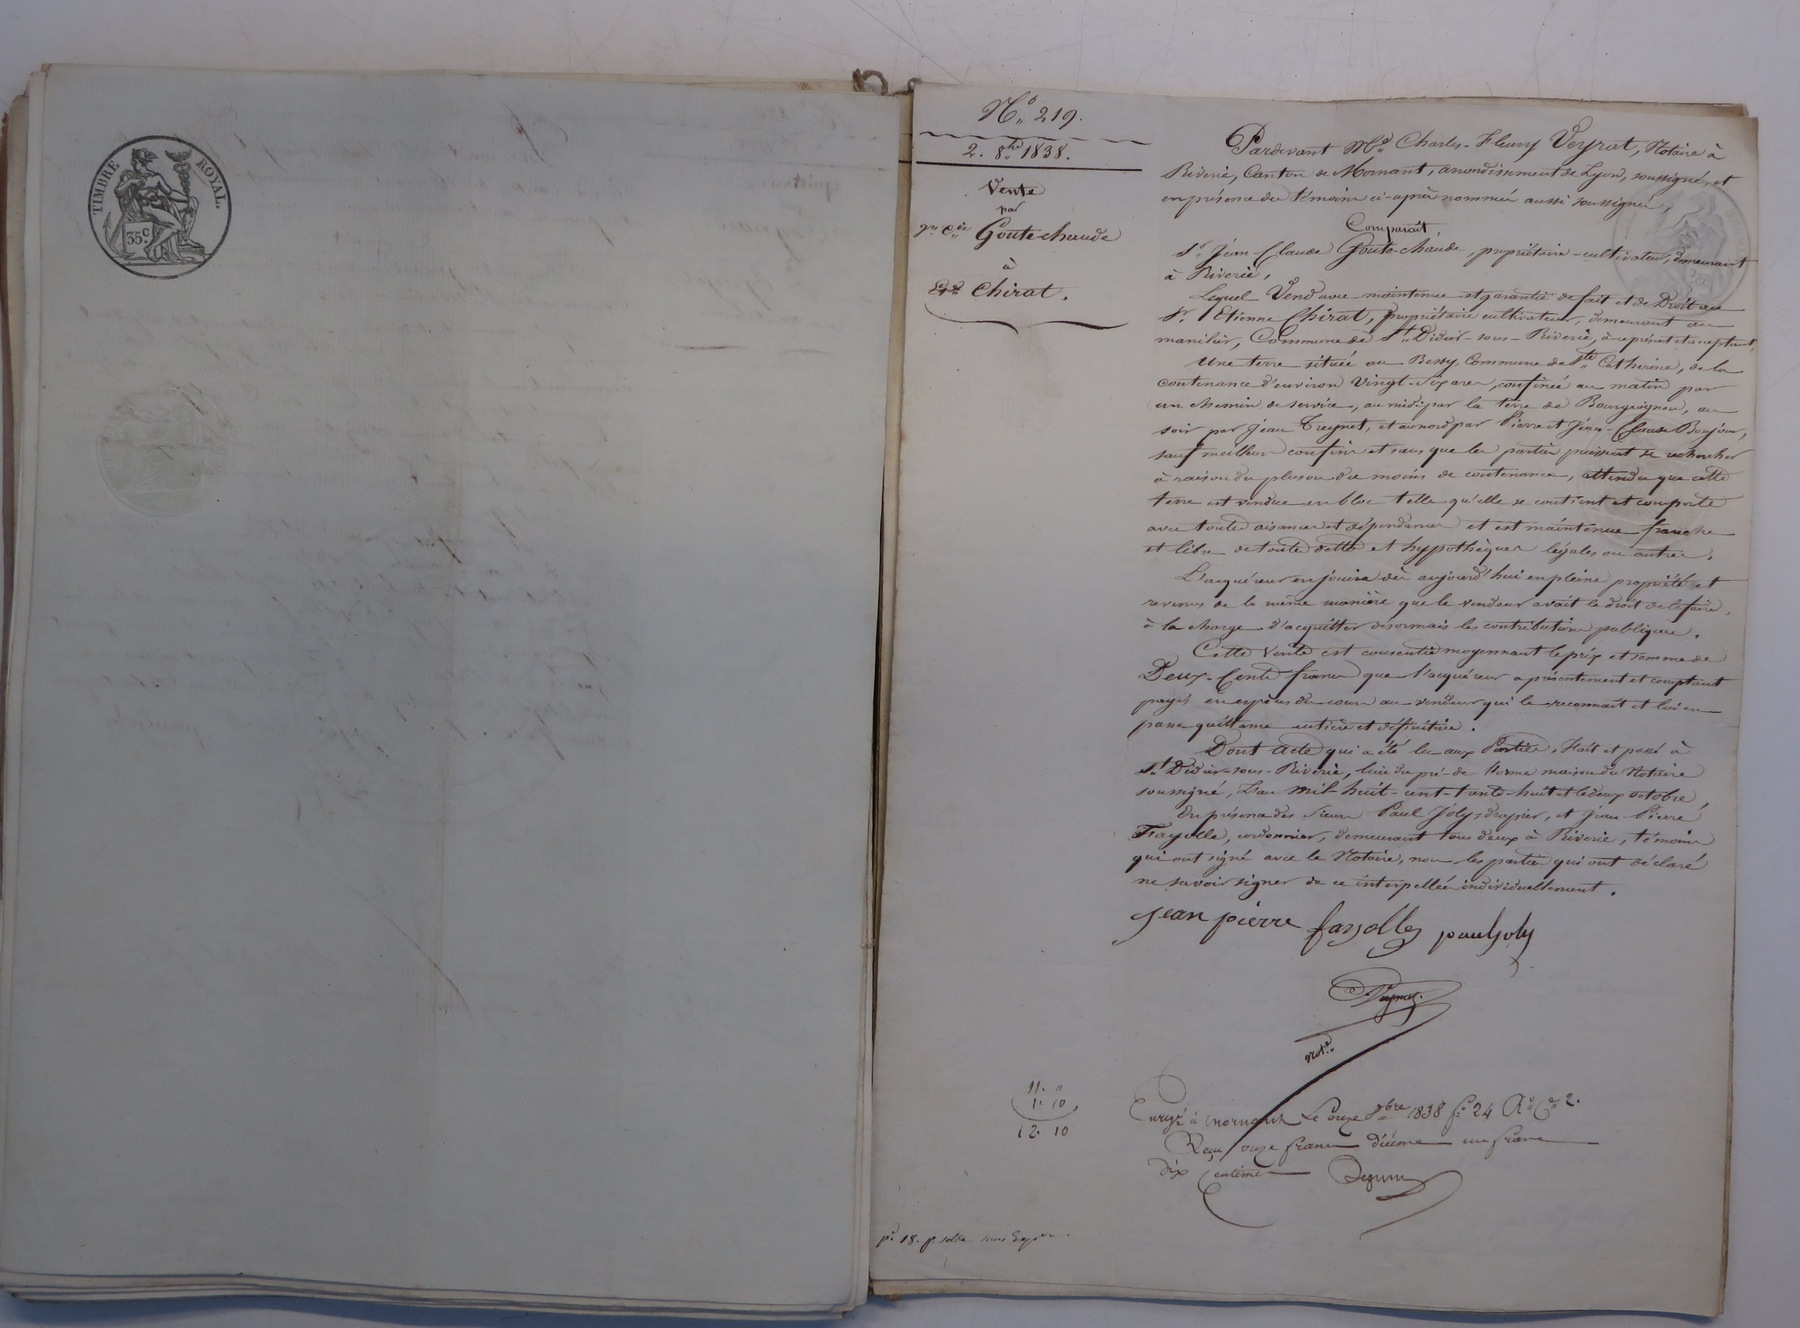 TIMBRE ROYAL.
35.c
No 219.
2. 8bre 1838.
Vente
par
Jn Cde Goutechaude
à
Chirat.
Pardevant Me Charles-Fleury Veyrat, Notaire à
Riverie, Canton de Mornant, arrondissement de Lyon, soussigné, et
en présence des témoins ci-après nommés aussi soussignés,
Comparait,
Sr Jean Claude Goutechaude, propriétaire-cultivateur, demeurant
à Riverie,
Lequel Vend avec maintenue et garantie de fait et de Droit au
Sr Etienne Chirat, propriétaire cultivateur, demeurant au
manilier, Commune de St Didier-sous-Riverie, à ce présent et acceptant,
Une terre située au Bessy, Commune de Ste Catherine, de la
contenance d'environ Vingt-Six ares, confinée au matin par
un chemin de service, au midi par la terre de Bourguignon, au
soir par Jean Treynet, et au nord par Pierre et Jean-Claude Bonjour,
sauf meilleurs confins et sans que les parties puissent se rechercher
à raison du plus ou du moins de contenance, attendu que cette
terre est vendue en bloc telle qu'elle se contient et comporte
avec toutes aisances et dépendances et est maintenue franche
et libre de toutes dettes et hypothèques légales ou autres.
L'acquéreur en jouira dès aujourd'hui en pleine propriété et
revenus de la même manière que le vendeur avait le droit de le faire,
à la charge d'acquitter désormais les contributions publiques.
Cette Vente est consentie moyennant le prix et somme de
Deux-Cents francs que l'acquéreur a présentement et comptant
payés en espèces du cours au vendeur qui le reconnait et lui en
passe quittance entière et définitive.
Dont Acte qui a été lu aux Parties, Fait et passé à
St Didier-sous-Riverie, lieu du pré-de maison du Notaire
soussigné, L'an mil-huit-cent-trente-huit et le deux octobre,
En présence des Sieurs Paul Joly, drapier, et Jean Pierre
Fayolle, cordonnier, demeurant tous deux à Riverie, témoins
qui ont signé avec le Notaire, non les parties qui ont déclaré
ne savoir signer de ce interpellées individuellement.
jean pierre fayolle paul joly
Veyrat
notre
11. "
1. 10
12. 10
Enregé à mornant Le onze 8bre 1838 fo 24 Ro Ce 2.
Reçu onze francs dixième un franc
dix centimes